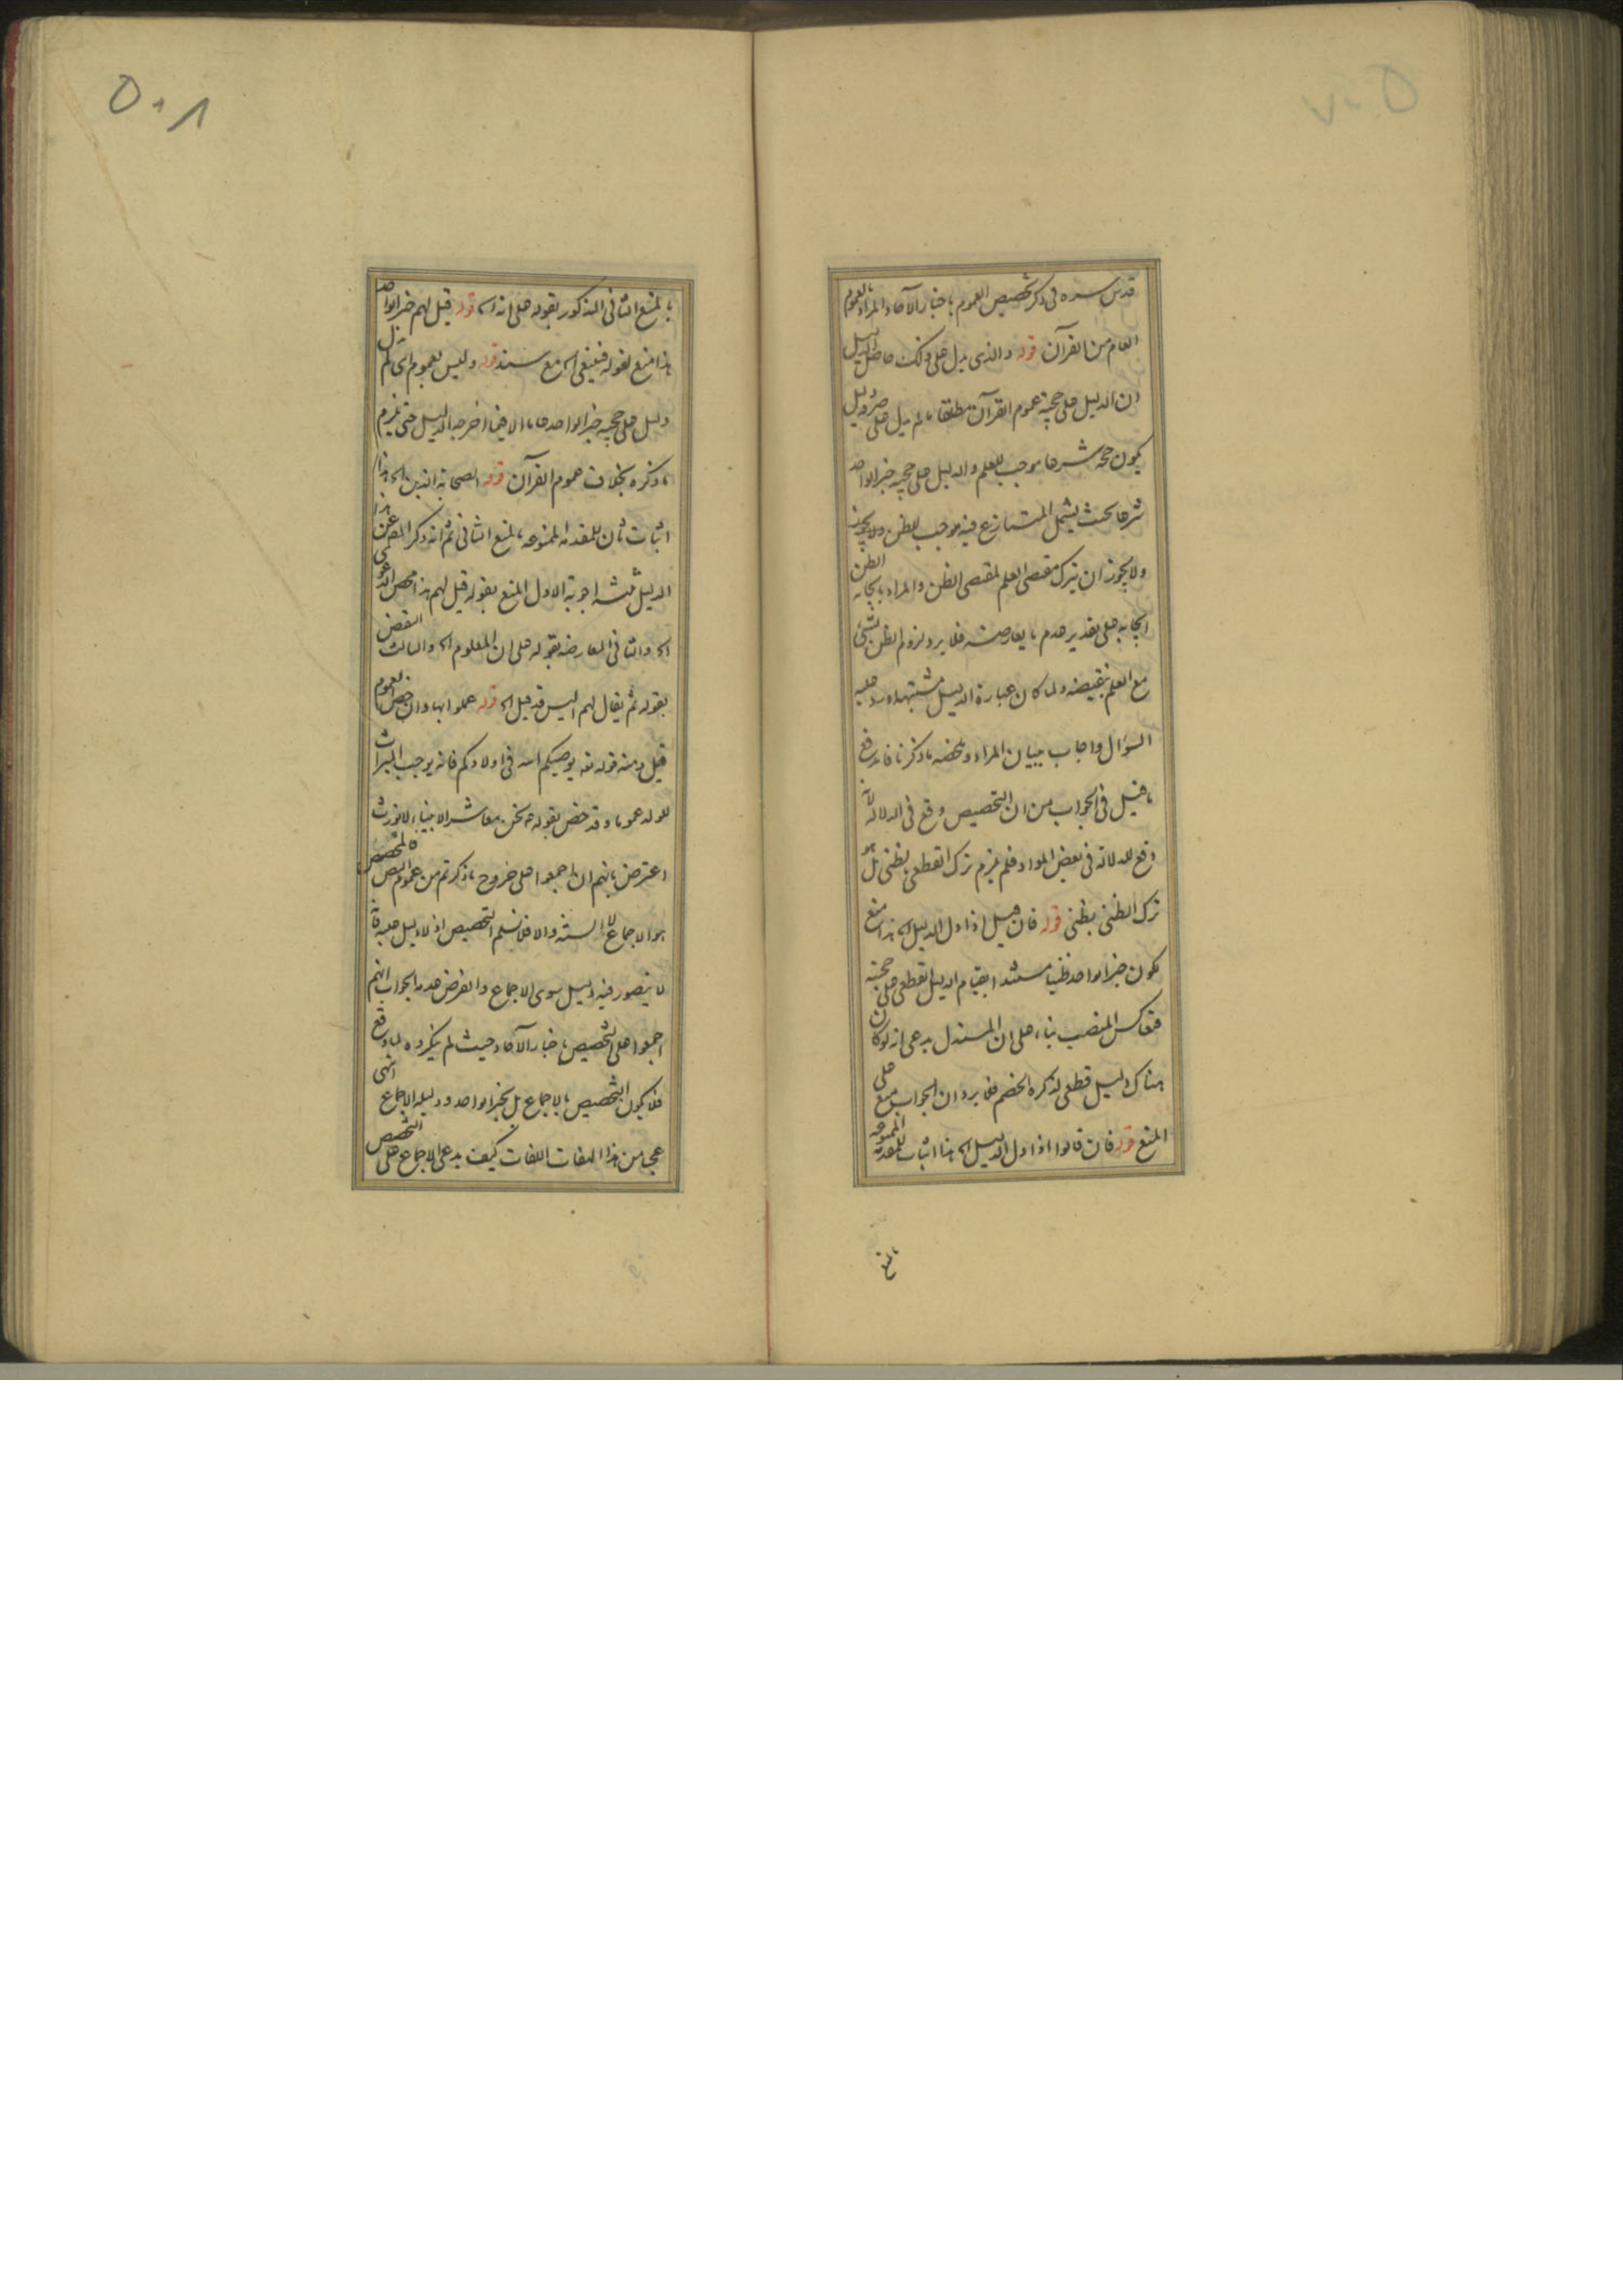 ٥٠٧
قدس سره فى ذكر تخصيص العموم باخبار الآحاد المراد بالعموم
العام من القرآن قوله والذى يدل على ذلك حاصل الدليل
ان الدليل على حجية عموم القرآن مطلقا ما لم يدل على دليل
يكون حجة شرعا موجب للعلم والدليل على حجية خبر الواحد
شرعا بحيث يشمل المتنازع فيه موجب للظن ولا يجوز
ولا يجوز ان يترك مقتضى العلم لمقتضى الظن والمراد بايجابه الظن
ايجابه على تقدير عدم ما يعارضه فلا يرد لزوم الظن بشئ
مع العلم بنقيضه ولما كان عبارة الدليل مشتبهة اورد عليه
السؤال واجاب ببيان المراد وملخصه ما ذكرنا فاندفع
ما قيل فى الجواب من ان التخصيص وقع فى الدلالة لانه
وقع للدلالة فى بعض الموارد فلم يلزم ترك القطعى بظنى بل هو
ترك الظنى بظنى قوله فان قيل اذا دل الدليل اه هذا منع
لكون خبر الواحد ظنيا مستندا بقيام الدليل القطعى على حجيته
فتعاكس المنصب بناء على ان المستدل يدعى انه لو كان
هناك دليل قطعى لذكره الخصم فلا يرد ان الجواب منع على
المنع قوله فان قالوا اذا دل الدليل اه هذا اثبات للمقدمة الممنوعة
بالمنع
٥٠٨
بالمنع الثانى المذكور بقوله على انه اه قوله قيل لهم خبر الواحد
هذا منع لقوله فينبغى اه مع سند قوله وليس لعموم اى لم يدل
دليل على حجية خبر الواحد عاما الا فيما اخرجه الدليل حتى يلزم
ما ذكره بخلاف عموم القرآن قوله الصحابة الذين اه هذا
اثبات ثان للمقدمة الممنوعة بالمنع الثانى ثم انه ذكر المص عن هذا
الدليل ثلثة اجوبة الاول المنع بقوله قيل لهم هذا محض الدعوى
اه والثانى المعارضة بقوله على ان المعلوم اه والثالث النقض
بقوله ثم يقال لهم اليس قد قيل اه قوله عملوا بها وان خص العموم
قيل ومنه قوله تعه يوصيكم الله فى اولادكم فانه يوجب الميراث
للولد عموما وقد خص بقوله ص نحن معاشر الانبياء لا نورث
اعترض بانهم ان اجمعوا على خروج ما ذكرتم من عموم النص فالمخصص
هو الاجماع لا السنة والا فلا نسلم التخصيص اذ لا دليل عليه فانه
لا يتصور فيه دليل سوى الاجماع والفرض عدمه الجواب انهم
اجمعوا على التخصيص باخبار الآحاد حيث لم ينكروه لما وقع
فلا يكون التخصيص بالاجماع بل بخبر الواحد ودليله الاجماع انتهى
عجبا من هذا الثقات كيف يدعى الاجماع على التخصيص